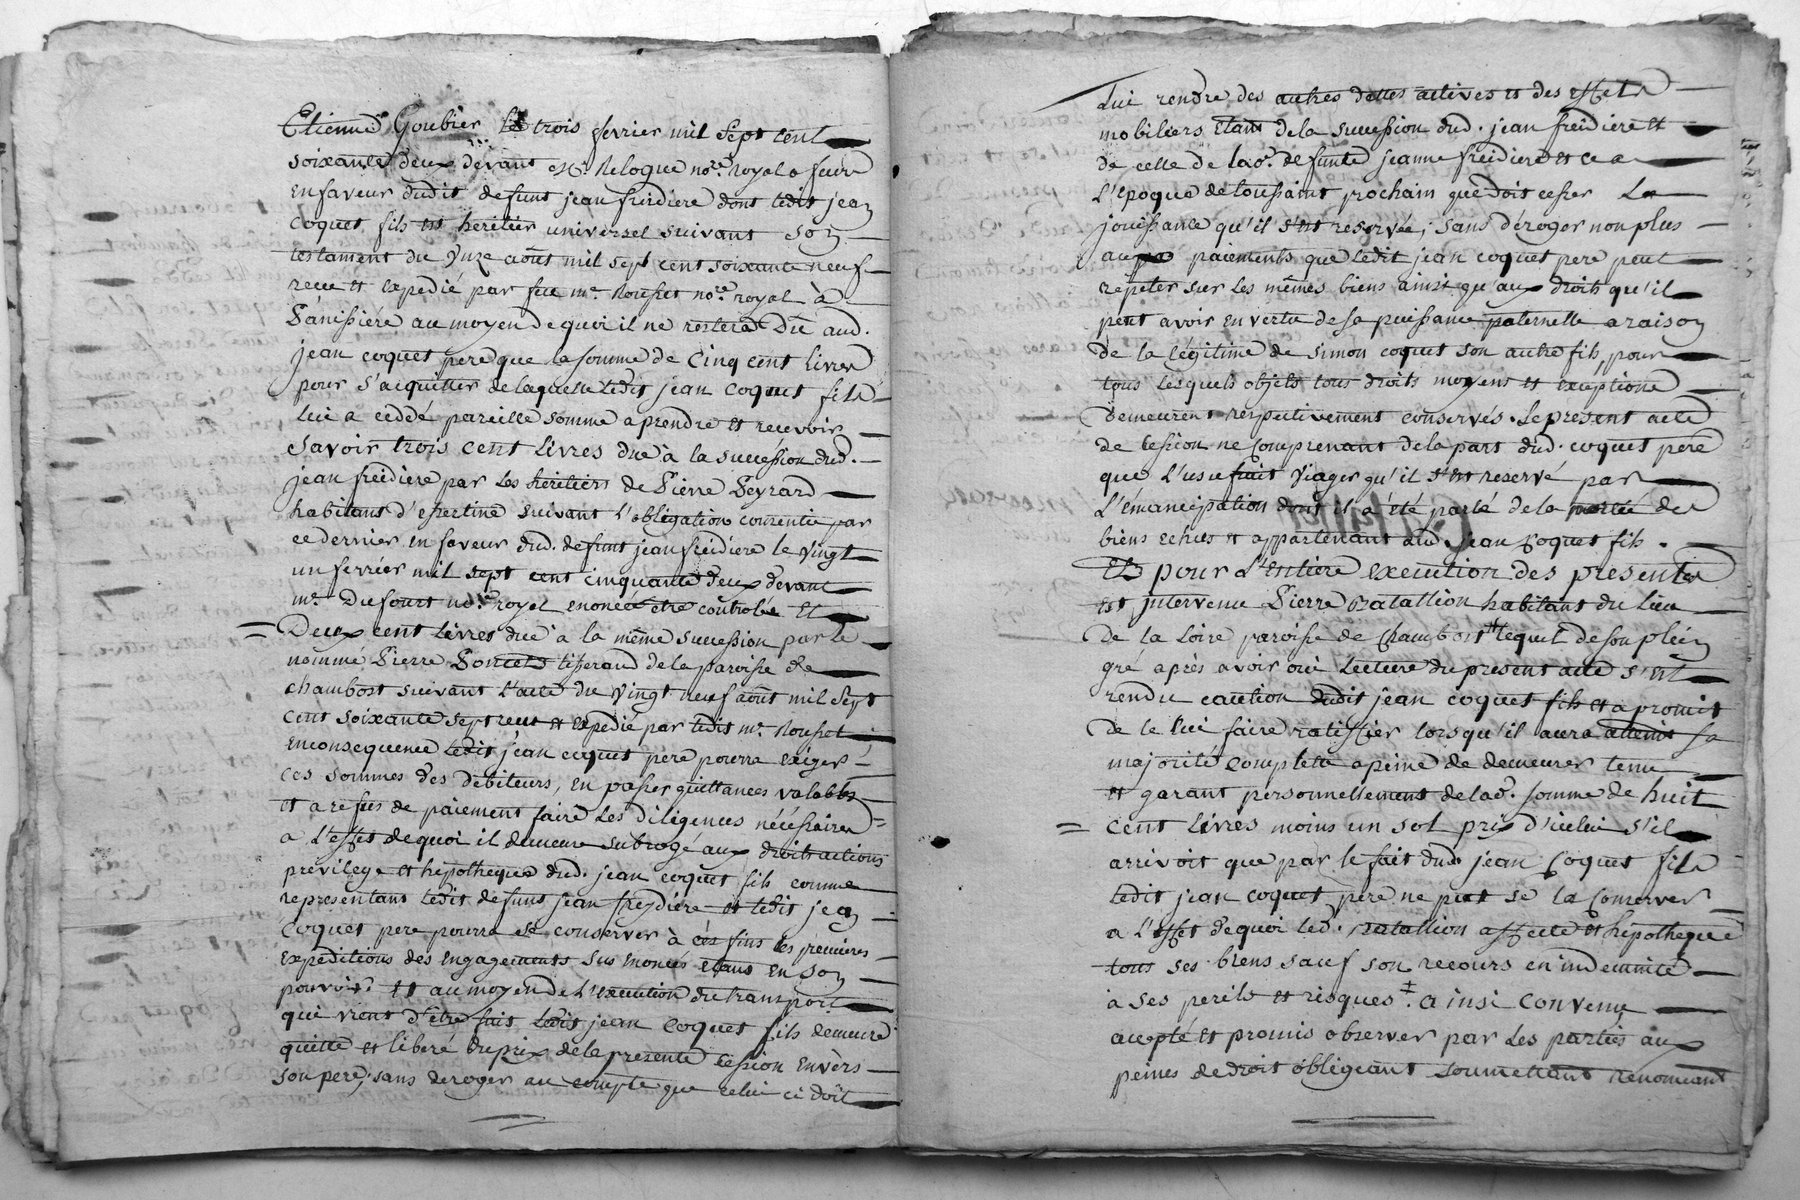 Etienne Goubier le trois fevrier mil sept cent
soixante deux devant Me. Reloque nore. royal a feurs
en faveur dudit defunt jean freidiere dont ledit jean
Coquet fils est heritier universel suivant son
testament du onze aout mil sept cent soixante neuf
recu et expedié par feu me. Rousset nore. royal à
Panissiére au moyen de quoi il ne restera Dû aud.
jean coquet pere que la somme de Cinq cent livres
pour s'acquitter de laquelle ledit jean Coquet fils
lui a ceddé pareille somme a prendre et recevoir
Savoir trois cent livres due à la succession dud.
jean freidiere par les heritiers de Pierre Peyrard
habitans d'essertine suivant l'obligation consentie par
ce dernier en faveur dud. defunt jean freidiere le vingt
un fevrier mil sept cent cinquante deux devant
me. Dufourt nore. royal enoncée etre controlée et
Deux cent livres due à la même succession par le
nommé Pierre Poncet tisserand de la paroisse de
chambost suivant l'acte du vingt neuf aout mil sept
cent soixante sept recu et expedié par ledit me. Rousset
en consequence ledit jean coquet pere pourra exiger
ces sommes des débiteurs, en passer quittances valables
et a refus de paiement faire les diligences nécessaires
a l'effet de quoi il demeure subrogé aux droits actions
previlege et hipotheques dud. jean coquet fils comme
representant ledit defunt jean freydiére et ledit jean
Coquet pere pourra se conserver à ces fins les premieres
expéditions des engagements sus enoncés etans en son
pouvoir. et au moyen de l'execution du transport
qui vient d'être fait ledit jean Coquet fils demeure
quitte et liberé du prix de la presente cession envèrs
son pere, sans deroger au compte que celui ci doit
Lui rendre des autres dettes actives et des effets
mobiliers etant de la succession dud. jean freidiere et
de celle de lad. defunte jeanne freidiere et ce a
l'epoque de toussaint prochain que doit cesser la
jouissance qu'il s'est reservée; sans déroger non plus
aux paiements que ledit jean coquet pere peut
repeter sur les mêmes biens ainsi qu'aux droits qu'il
peut avoir en vertu de sa puissance paternelle a raison
de la légitime de simon coquet son autre fils, pour
tous lesquels objets tous droits moyens et exceptions
Demeurent respectivement conservés. le present acte
de cession ne comprenant de la part dud. coquet pere
que l'usufruit viager qu'il s'est reservé par
l'émancipation dont il à été parlé de la moitié des
biens echus et appartenant aud. jean Coquet fils.
Et pour l'entiere execution des presentes
est intervenu Pierre Batallion habitant du lieu
De la loire paroisse de chambost lequel de son plein
gré après avoir oui lecture du present acte s'est
rendu caution dudit jean coquet fils et a promit
de le lui faire ratiffier lorsqu'il aura atteint sa
majorité complette a peine de demeurer tenu
et garant personnellement de lad. somme de huit
cent livres moins un sol prix d'icelui s'il
arrivoit que par le fait dud. jean Coquet fils
ledit jean coquet pere ne put se la conserver
a l'effet de quoi led. Batallion affecte et hipotheque
tous ses biens sauf son recours en indemnité
à ses perils et risques. ainsi convenu
acepté et promis observer par les parties aux
peines de droit obligeant soumettant renonceant